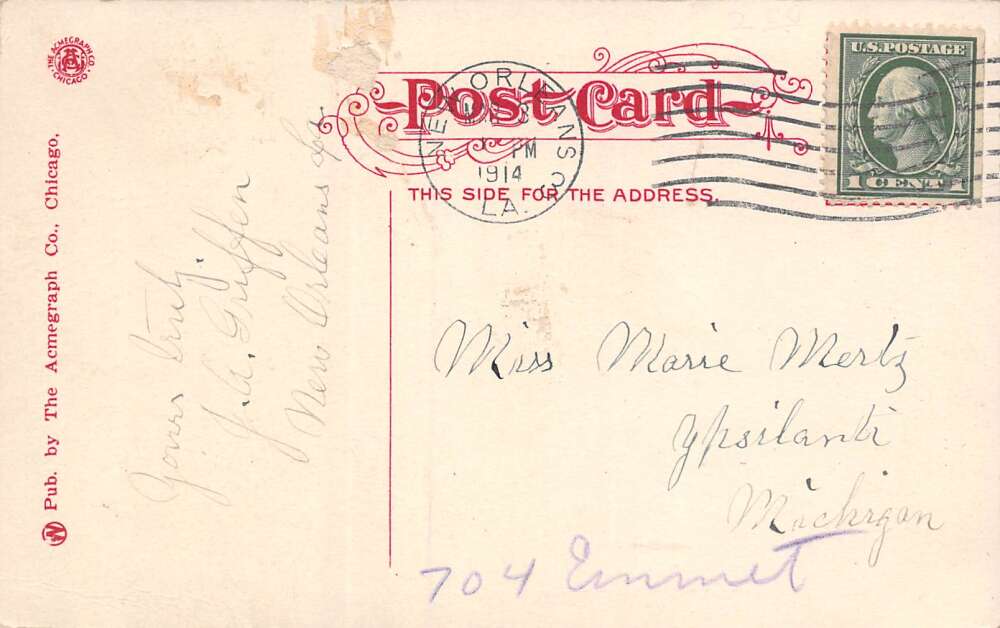 THE ACMEGRAPH CO.
CHICAGO
Pub. by The Acmegraph Co., Chicago.
Yours truly.
J. A. Griffen
New Orleans La
Post Card
THIS SIDE FOR THE ADDRESS.
NEW ORLEANS
PM
1914
LA.
U.S. POSTAGE
1 CENT 1
Miss Marie Mertz
Ypsilanti
Michigan
704 Emmet